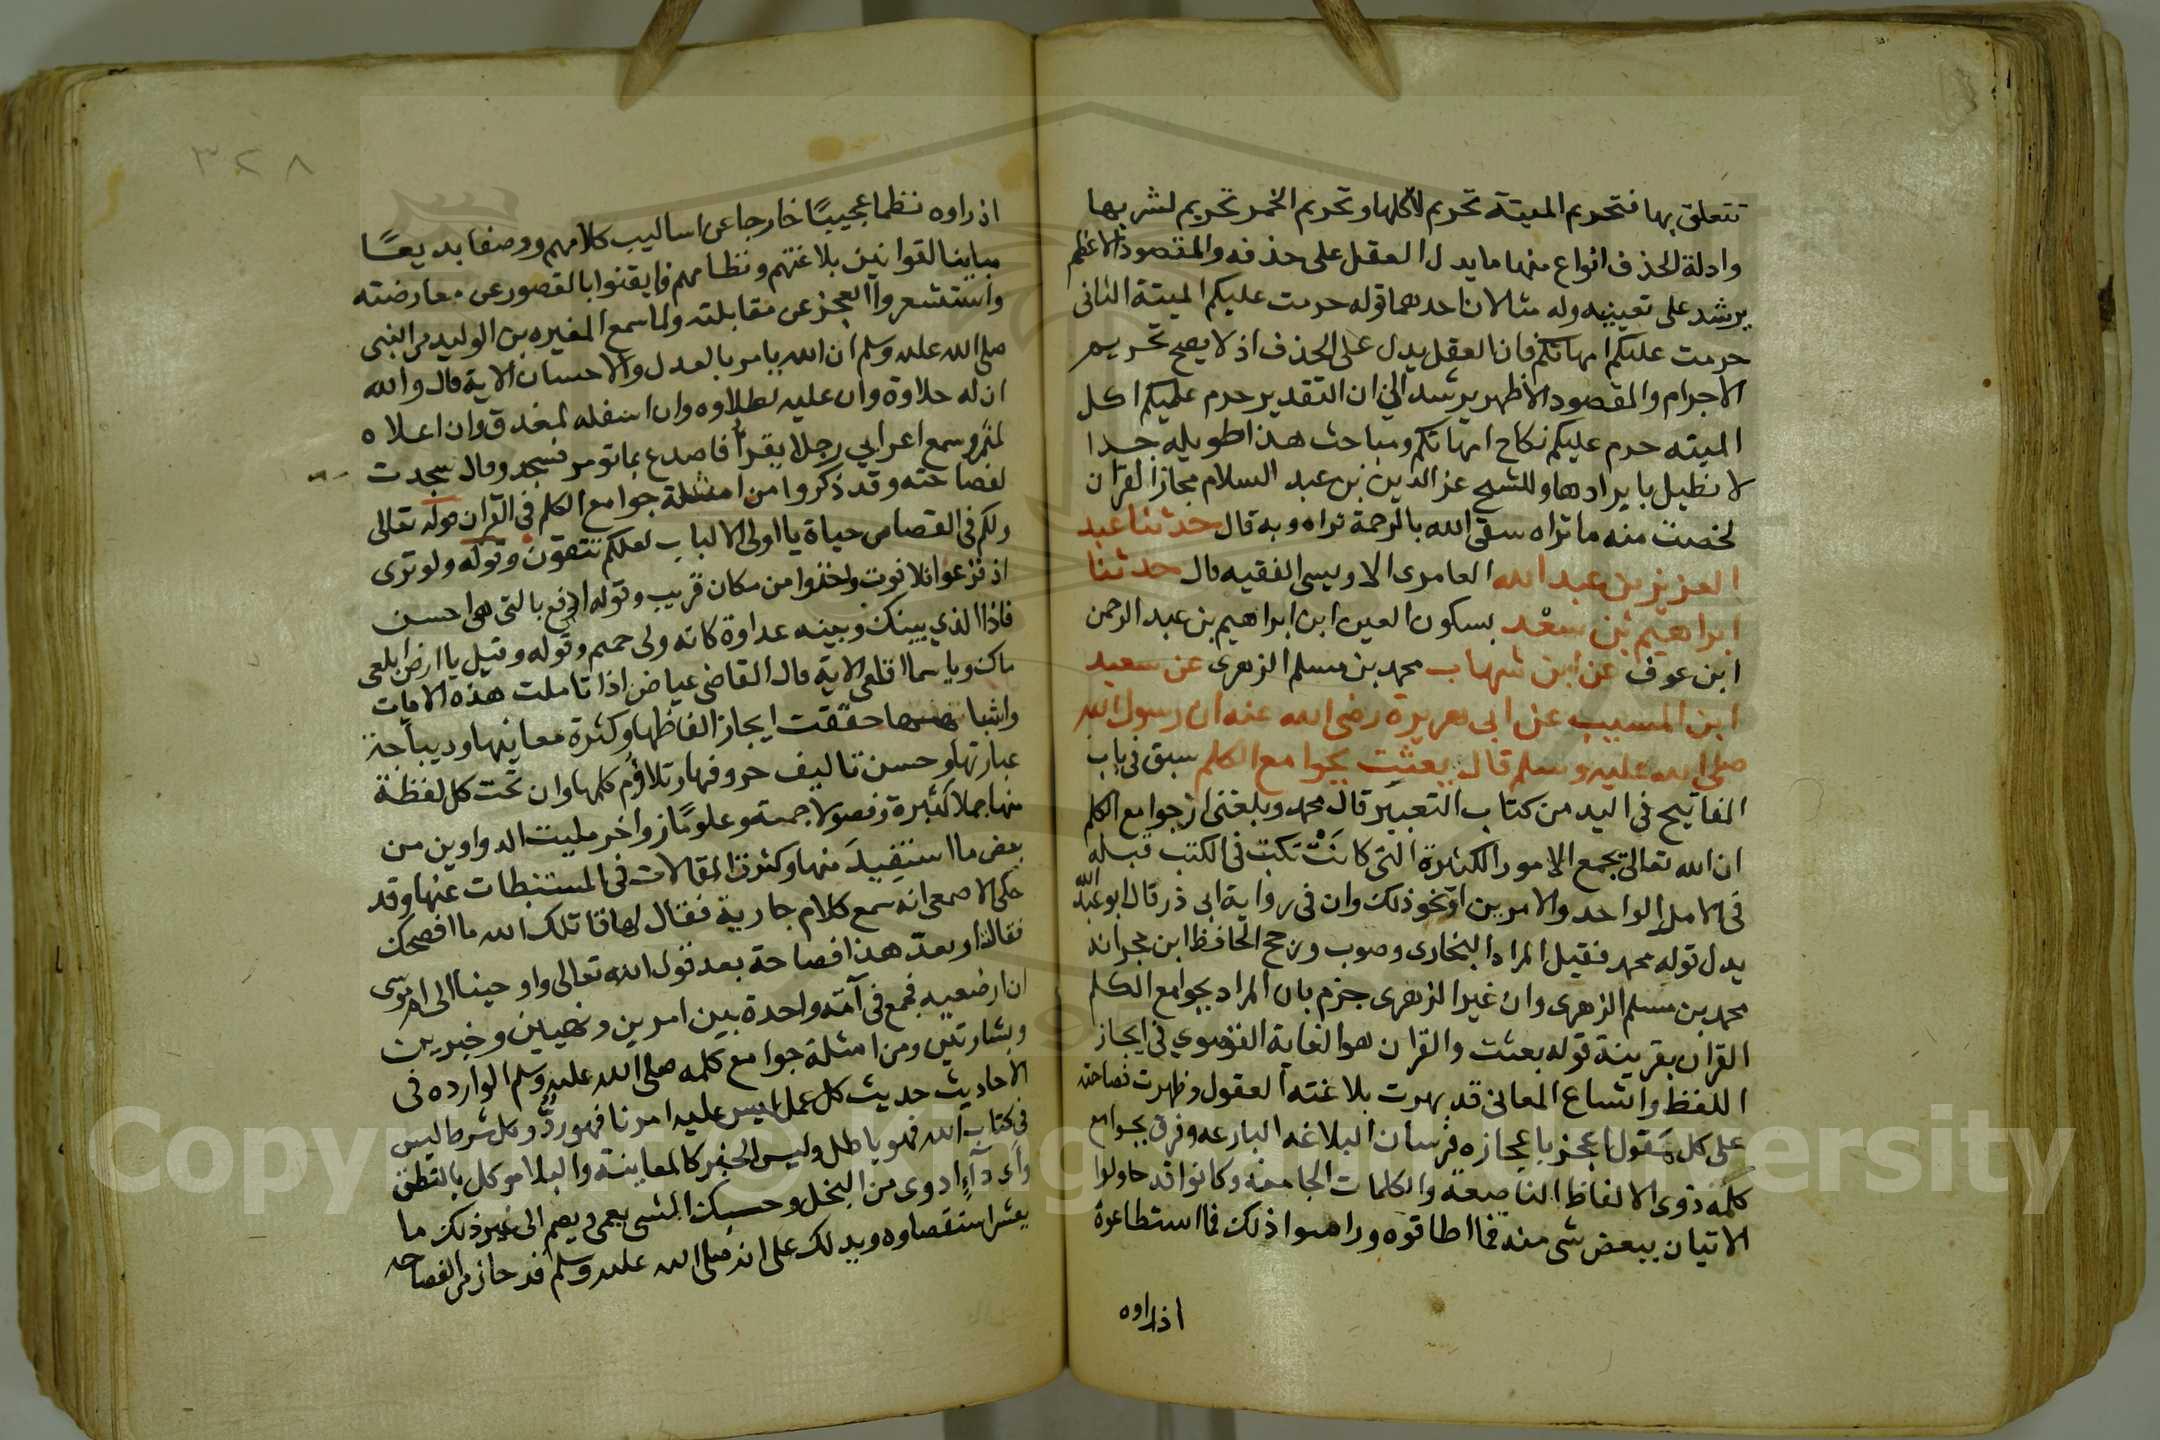 تتعلق بها فتحريم الميتة تحريم لاكلها وتحريم الخمر تحريم لشربها
وادلة الحذف انواع منها ما يدل العقل على حذفه والمقصود الاعظم
يرشد على تعيينه وله مثالان احدهما قوله حرمت عليكم الميتة الثانى
حرمت عليكم امهاتكم فان العقل يدل على الحذف اذ لا يصح تحريم
الاجرام والمقصود الاظهر يرشد الى ان التقدير حرم عليكم اكل
الميته حرم عليكم نكاح امهاتكم ومباحث هذا طويله جدا
لا نطيل بايرادها وللشيخ عز الدين بن عبد السلام مجاز القران
لخصت منه ما تراه سقى الله بالرحمة ثراه وبه قال حدثنا عبد
العزيز بن عبد الله العامرى الاويسى الفقيه قال حدثنا
ابراهيم بن سعْد بسكون العين ابن ابراهيم بن عبد الرحمن
ابن عوف عن ابن شهاب محمد بن مسلم الزهرى عن سعيد
ابن المسيب عن ابى هريرة رضى الله عنه ان رسول الله
صلى الله عليه وسلم قال بعثت بجوامع الكلم سبق فى باب
المفاتيح فى اليد من كتاب التعبير قال محمد وبلغنى ان جوامع الكلم
ان الله تعالى يجمع الامور الكثيرة التى كانَتْ تكتب فى الكتب قبله
فى الامر الواحد والامرين او نحو ذلك وان فى رواية ابى ذر قال ابو عبد الله
بدل قوله محمد فقيل المراد البخارى وصوب ورجح الحافظ ابن حجر انه
محمد بن مسلم الزهرى وان غير الزهرى جزم بان المراد بجوامع الكلم
القران بقرينة قوله بعثت والقران هو الغاية القصوي فى ايجاز
اللفظ واتساع المعانى قد بهرت بلاغته العقول وظهرت فصاحته
على كل مَقول اعجز باعجازه فرسان البلاغه البارعه وفرق بجوامع
كلمه ذوى الالفاظ الناصعة والكلمات الجامعة وكانوا قد حاولوا
الاتيان ببعض شى منه فما اطاقوه وراموا ذلك فما استطاعوه
اذ راوه
٣٢٨
اذ راوه نظما عجيبًا خارجا عن اساليب كلامهم ووصفا بديعًا
مباينا لقوانين بلاغتهم ونظامهم فايقنوا بالقصور عن معارضته
واستشعروا العجز عن مقابلته ولما سمع المغيره بن الوليد من النبى
صلى الله عليه وسلم ان الله يامر بالعدل والاحسان الاية قال والله
ان له حلاوة وان عليه لطلاوه وان اسفله لمغدق وان اعلاه
لمثمر وسمع اعرابي رجلا يقرأ فاصدع بما تومر فسجد وقال سجدت
لفصاحته وقد ذكروا من امثلة جوامع الكلم فى القران قوله تعالى
ولكم فى القصاص حياة يا اولى الالباب لعلكم تتقون وقوله ولو ترى
اذ فزعوا فلا فوت واخذوا من مكان قريب وقوله ادفع بالتى هى احسن
فاذا الذي بينك وبينه عداوة كانه ولى حميم وقوله وقيل يا ارض ابلعى
ماك ويا سما اقلعى الاية قال القاضى عياض اذا تاملت هذه الايات
واشباهها حققت ايجاز الفاظها وكثرة معاينها وديباجة
عبارتها وحسن تاليف حروفها وتلاؤم كلمها وان تحت كل لفظة
منها جملا كثيرة وفصولا جمة وعلومًا زواخر مليت الدواوين من
بعض ما استفيدَ منها وكثرت المقالات فى المستنبطات عنها وقد
حكى الاصمعى انه سمع كلام جارية فقال لها قاتلك الله ما افصحك
فقالت او يعدّ هذا فصاحة بعد قول الله تعالى واوحينا الى ام موسى
ان ارضعيه فجمع فى آية واحدة بين امرين ونهيين وخبرين
وبشارتين ومن امثلة جوامع كلمه صلى الله عليه وسلم الوارده فى
الاحاديث حديث كل عمل ليس عليه امرنا فهو ردٌّ وكل شرط ليس
فى كتاب الله فهو باطل وليس الخبر كالمعاينة والبلا موكل بالمنطق
وأى دآءٍ ادوى من البخل وحبك الشى يعمى ويصم الى غير ذلك ما
يعسر استقصاوه ويدلك على انه صلى الله عليه وسلم قد حاز من الفصاحه
Copyright © King Saud University